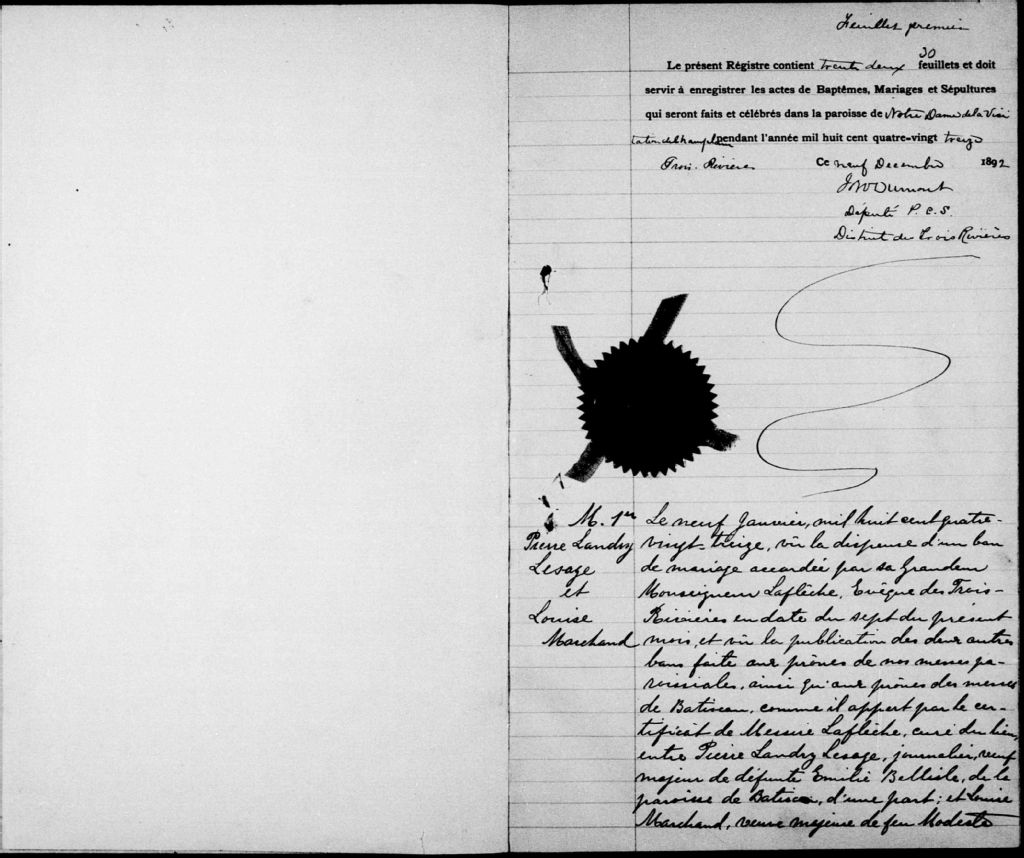 Feuillet premier
30
Le présent Régistre contient trente deux feuillets et doit
servir à enregistrer les actes de Baptêmes, Mariages et Sépultures
qui seront faits et célébrés dans la paroisse de Notre Dame de la Visi
tation de Champlain pendant l'année mil huit cent quatre-vingt treize
Trois-Rivières Ce neuf Decembre 1892
Député P. C. S.
District des Trois Rivières
M. 1er
Pierre Landry
Lesage
et
Louise
Marchand
Le neuf Janvier, mil huit cent quatre-
vingt-treize, vû la dispense d'un ban
de mariage accordée par sa Grandeur
Monseigneur Laflèche, Evêque des Trois-
Rivières en date du sept du présent
mois, et vû la publication des deux autres
bans faite aux prônes de nos messes pa-
roissiales, ainsi qu'aux prônes des messes
de Batiscan, comme il appert par le cer-
tificat de Messire Laflèche, curé du lieu,
entre Pierre Landry Lesage, journalier, veuf
majeur de défunte Emilie Bellisle, de la
paroisse de Batiscan, d'une part; et Louise
Marchand, veuve majeure de feu Modeste